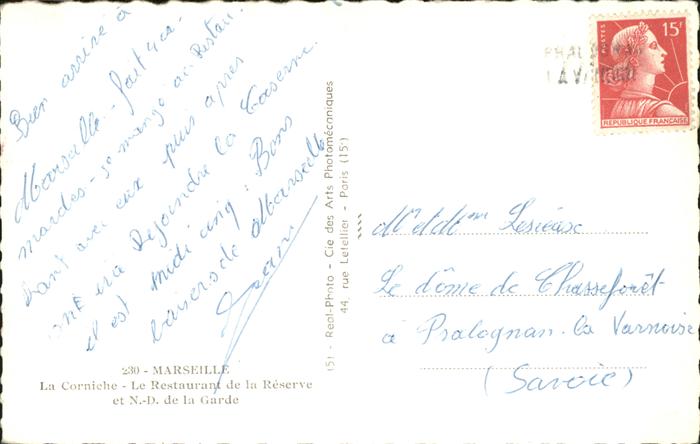 Bien arrivé à
Marseille - fait 4 ca-
mardes - je mange au Restau.
rant avec eux puis après
on ira Rejoindre la Caserne.
il est midi cinq. Bons
baisers de Marseille
Jean
230 - MARSEILLE
La Corniche - Le Restaurant de la Réserve
et N.-D. de la Garde
(5) - Real-Photo - Cie des Arts Photomécaniques
44, rue Letellier - Paris (15e)
POSTES 15F
REPUBLIQUE FRANÇAISE
LA VANOISE
Mr et Mme
Le dôme de Chasseforêt
à Pralognan. la Vannoise
(Savoie)